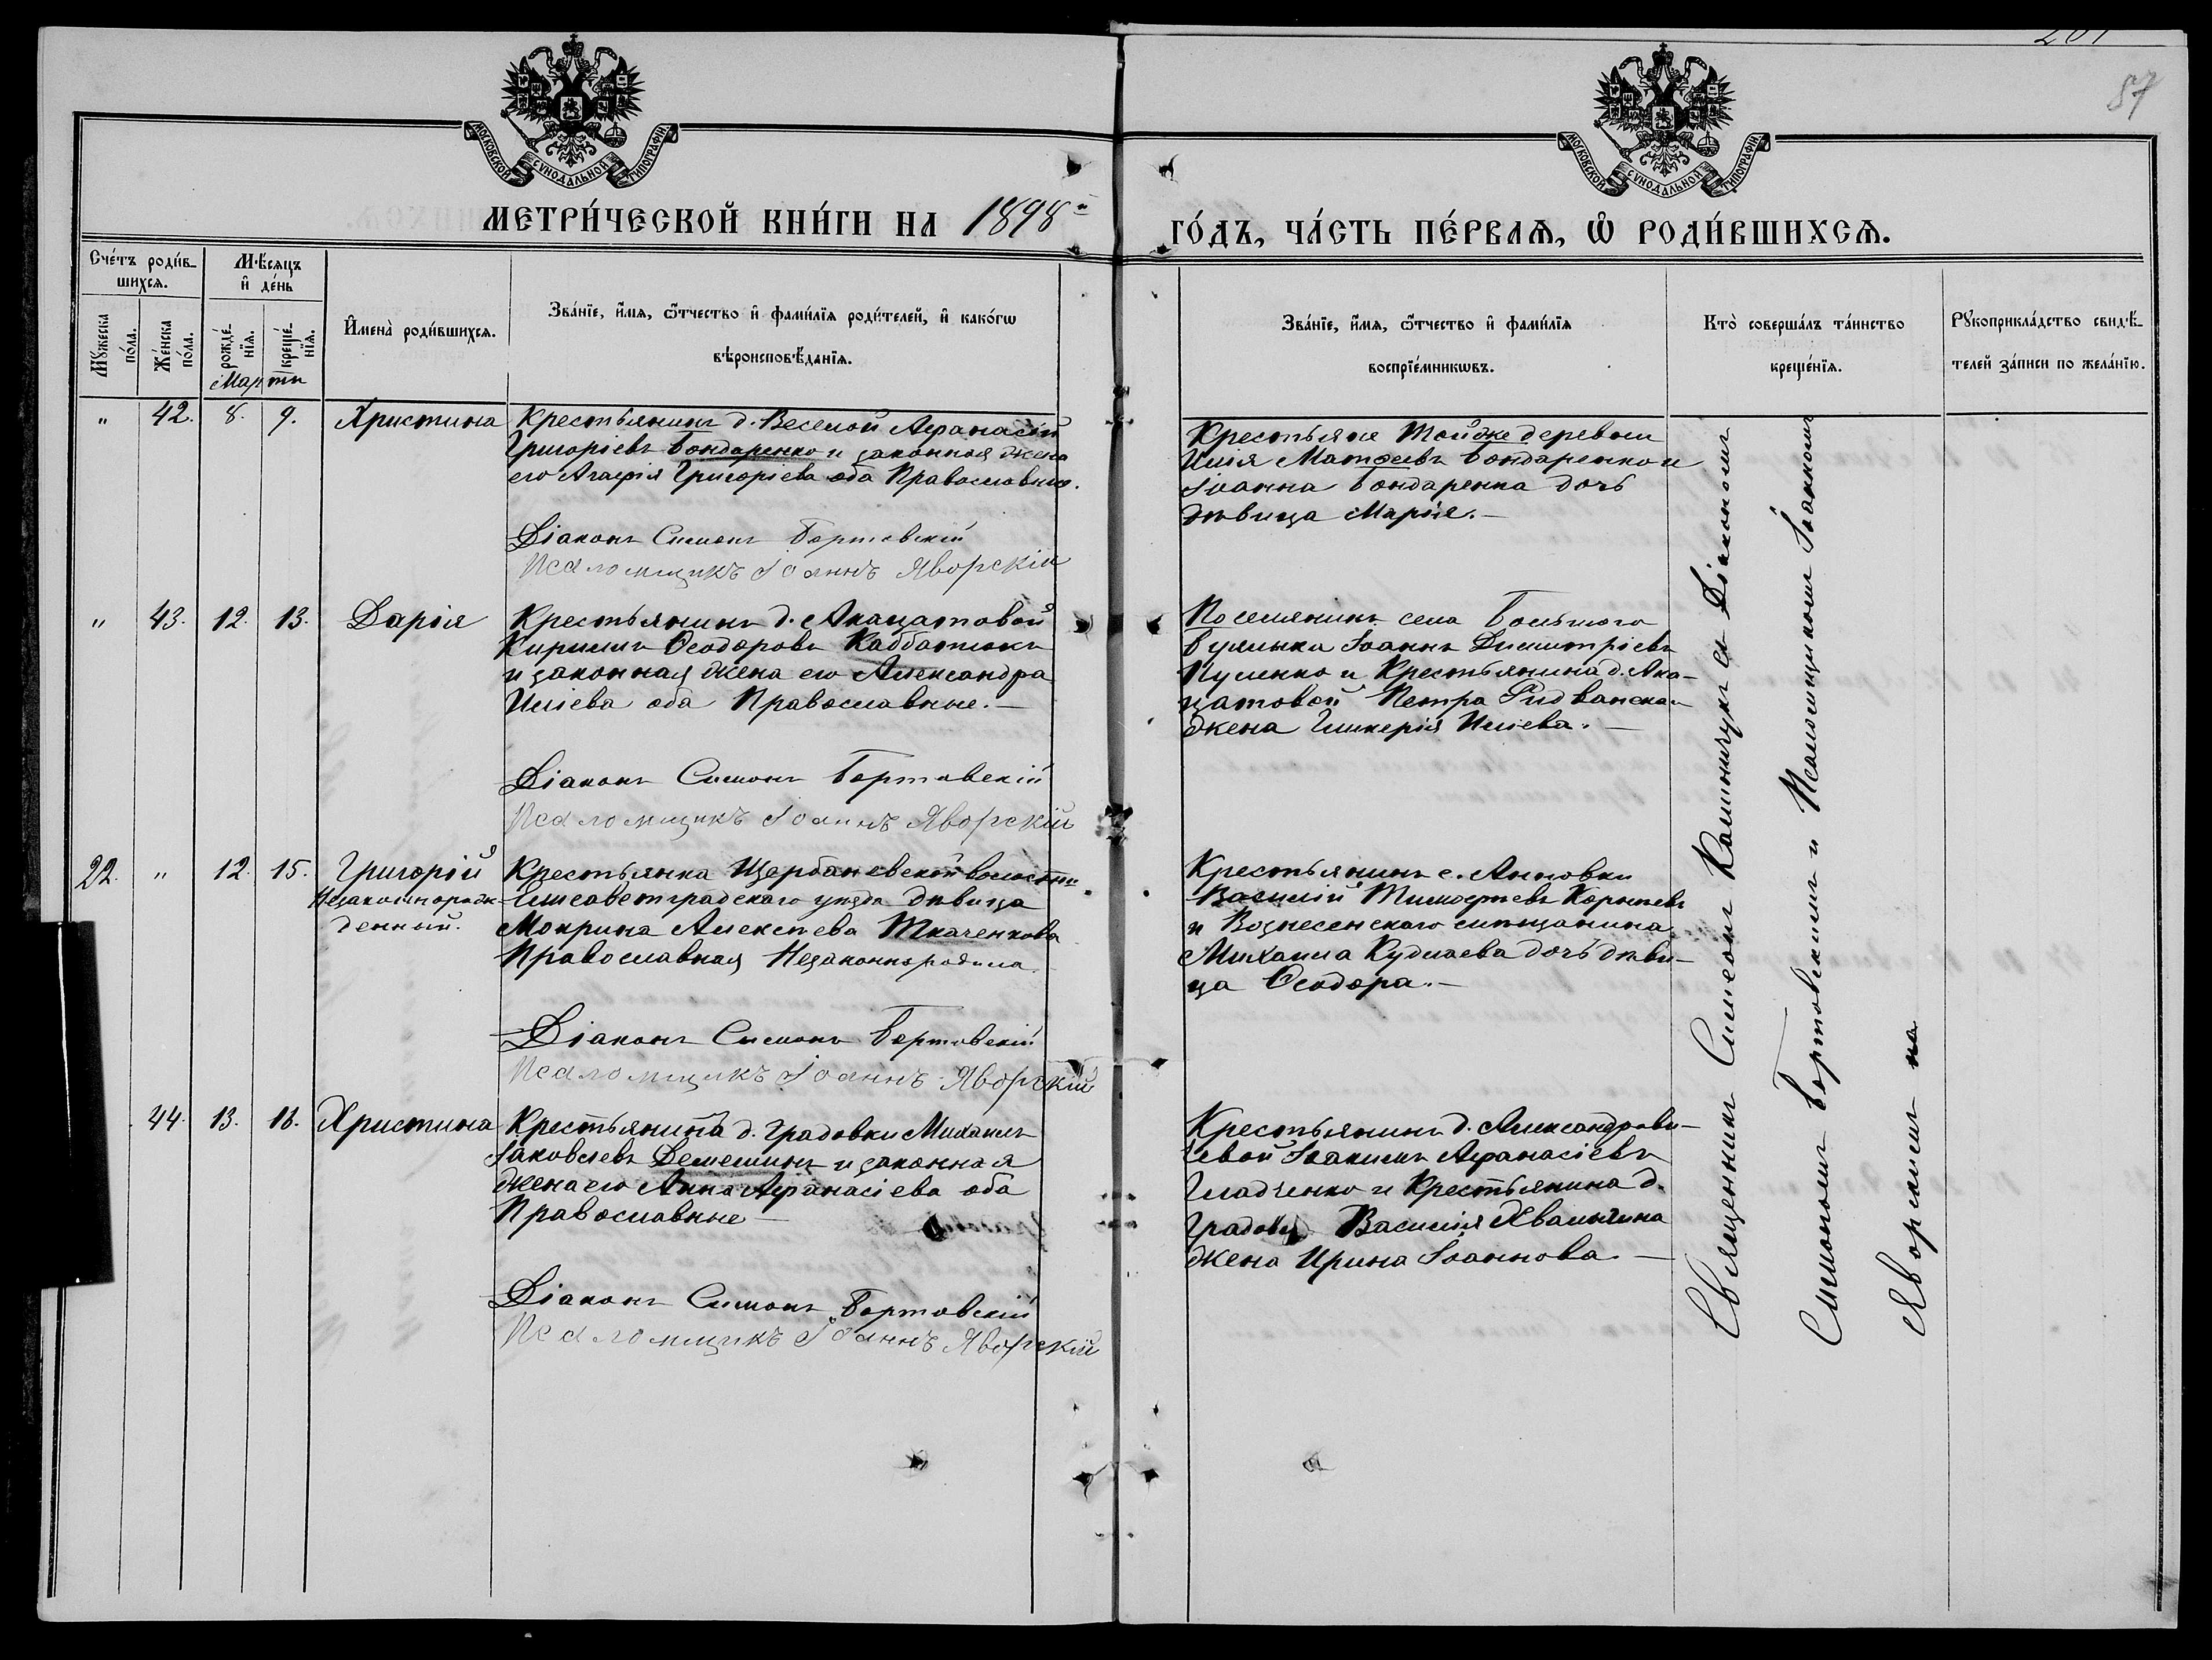 201
57
МОСКОВСКОЙ СѴНОДАЛЬНОЙ ТИПОГРАФІИ.
МОСКОВСКОЙ СѴНОДАЛЬНОЙ ТИПОГРАФІИ.
МЕТРИ́ЧЕСКОЙ КНИ́ГИ НА 1898 ГО́ДЪ, ЧА́СТЬ ПЕ́РВАѦ, Ѽ РОДИ́ВШИХСѦ.
Сче́тъ роди́вшихсѧ.
Мꙋжеска по́ла.
Же́нска по́ла.
Мѣсѧцъ и҆ де́нь
рожде́нїѧ.
креще́нїѧ.
Марта
И҆мена̀ роди́вшихсѧ.
Зва́нїе, и҆́мѧ, ѻ҆́тчество и҆ фами́лїѧ роди́телей, и҆ како́гѡ
вѣроисповѣ́данїѧ.
Зва́нїе, и҆́мѧ, ѻ҆́тчество и҆ фами́лїѧ
воспрїе́мникѡвъ.
Кто̀ соверша́лъ та́инство
креще́нїѧ.
Рꙋкоприкла́дство свидѣ́-
телей за́писи по жела́нїю.
" 42. 8. 9. Христина
Крестьянинъ д. Веселой Аѳанасій
Григоріевъ Бондаренко и законная жена
его Агафія Григоріева оба Православные.
Діаконъ Симонъ Бортовскій
Псаломщикъ Іоаннъ Яворскій
Крестьяне той же деревни
Илія Матѳеевъ Бондаренко и
Іоанна Бондаренка дочь
дѣвица Марія.—
" 43. 12. 13. Дарія
Крестьянинъ д. Акацатовой
Кириллъ Ѳеодоровъ
и законная жена его Александра
Иліева оба Православные.—
Діаконъ Симонъ Бортовскій
Псаломщикъ Іоаннъ Яворскій
Поселянинъ села Большого
Буялыка Іоаннъ Димитріевъ
и Крестьянина д. Ака-
цатовой Петра
жена Гликерія Иліева.—
22. " 12. 15. Григорій
Незаконнорож-
денный.
Крестьянка Щербановской волости
Елисаветградскаго уѣзда дѣвица
Мокрина Алексѣева Ткаченкова
Православная Незаконнородила.
Діаконъ Симонъ Бортовскій
Псаломщикъ Іоаннъ Яворскій
Крестьянинъ с. Анновки
Василій Тимоѳеевъ
и Вознесенскаго мѣщанина
Михаила дочь дѣви-
ца Ѳеодора.—
44. 13. 18. Христина
Крестьянинъ д. Градовки Михаилъ
Іаковлевъ и законная
жена его Анна Аѳанасіева оба
Православные—
Діаконъ Симонъ Бортовскій
Псаломщикъ Іоаннъ Яворскій
Крестьянинъ д. Александрови-
чевой Іоакимъ Аѳанасіевъ
Гладченко и Крестьянина д.
Градовки Василія
жена Ирина Іоаннова.—
Священникъ Симеонъ съ Діакономъ
Симономъ Бортовскимъ и Псаломщикомъ Іоанномъ
Яворскимъ